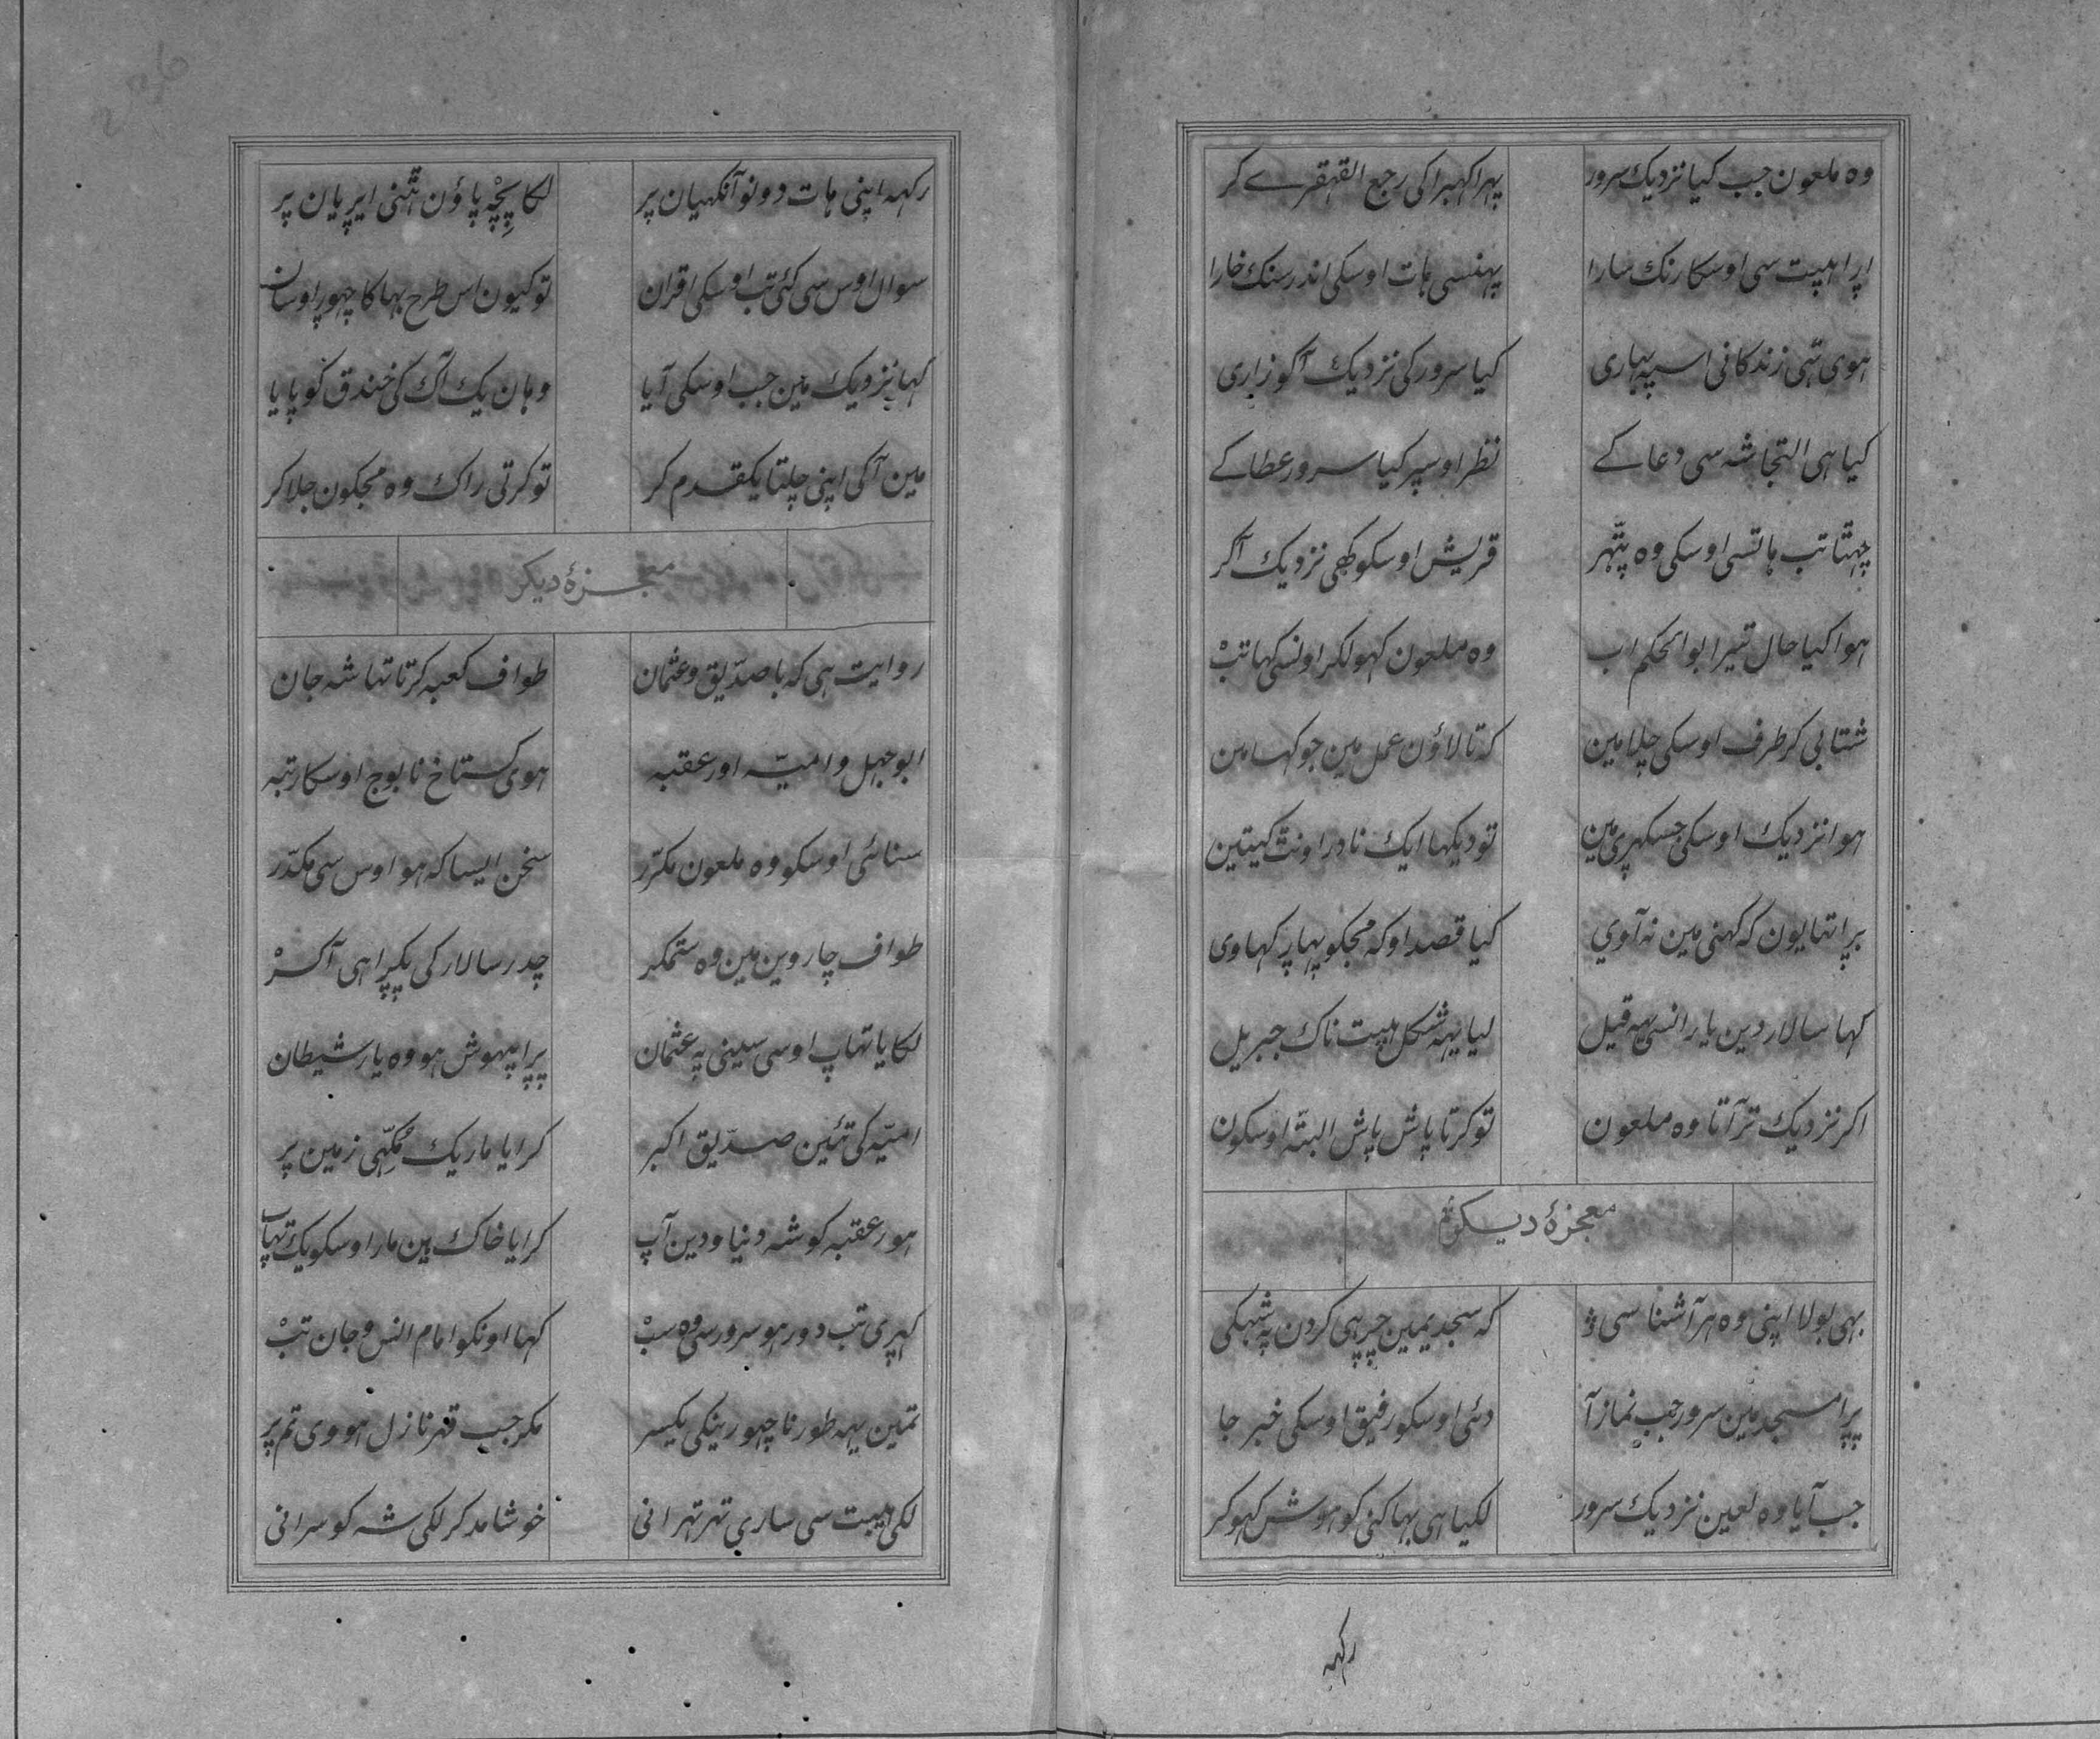 وه ملعون جب کیا نزدیک سرور پہر اکہبرا کی رجع القهقرے کر
اپر اہیبت سی اوسکا رنک سارا پہنسی ہات اوسکی اندر سنک خارا
ہوی تہی زندکانی اسپہ بہاری کیا سرور کی نزدیک آکو زاری
کیا ہی التجا شہ سی دعا کے نظر اوسپر کیا سرور عطا کے
چہتا تب ہاتسی اوسکی وه پتہر قریش اوسکو کہی نزدیک آکر
ہوا کیا حال تیرا بوالحکم اب وه ملعون کہولکر اونسی کہا تب
شتابی کر طرف اوسکی چلا مین که تا لاؤن عمل مین جو کہا مین
ہوا نزدیک اوسکی جسکہری مین تو دیکہا ایک نادر اونت کیتین
براتہا یون که کہنی مین نه آوی کیا قصد او که مجکو پہاپر کہاوی
کہا سالار دین یارانسی یہه قیل لیا یہه شکل ہیبت ناک جبریل
اکر نزدیک تر آتا وه ملعون تو کرتا پاش پاش البتہ اوسکون
معجزۂ دیکر
بہی بولا اپنی وه ہر آشنا سی که سجدیمین چرہی کردن په شہکی
پرا مسجد مین سرور جب نماز آ دئی اوسکو رفیق اوسکی خبر جا
جب آیا وه لعین نزدیک سرور لکیا ہی بہاکنی کو ہوش کہو کر
رکہه
رکہه اپنی ہات دونو آنکہیان پر لکا پچہه پاؤن ہتنی ایریان پر
سوال اوس سی کئی تب اوسکی اقران تو کیون اس طرح بہاکا چہور اوسان
کہا نزدیک مین جب اوسکی آیا وہان یک آک کی خندق کو پایا
مین آکی اپنی چلتا یکقدم کر تو کرتی راک وه مجکون جلا کر
معجزۂ دیکر
روایت ہی که با صدّیق و عثمان طواف کعبه کرتا تہا شه جان
ابو جہل و امیّه اور عقبه ہوی کستاخ نا بوج اوسکا رتبه
سنائی اوسکو وه ملعون مکرّر سخن ایسا که ہو اوس سی مکدّر
طواف چاروین مین وه ستمکر چدر سالار کی پکرا ہی آکر
لکایا تہاپ اوسی سینی په عثمان پرا بیہوش ہو وه یار شیطان
امیّه کی تئین صدّیق اکبر کرایا مار یک مکہی زمین پر
ہور عقبه کو شه دنیا و دین آپ کرایا خاک مین مار اوسکو یک تہاپ
کہری تب دور ہو سرور سی وه سب کہا اونکو امام انس و جان تب
تمین یہه طور نا چہورینکی یکسر مکر جب قہر نازل ہووی تم پر
لکی ہیبت سی ساری تہر تہرانی خوشامد کر لکی شه کو سرانی